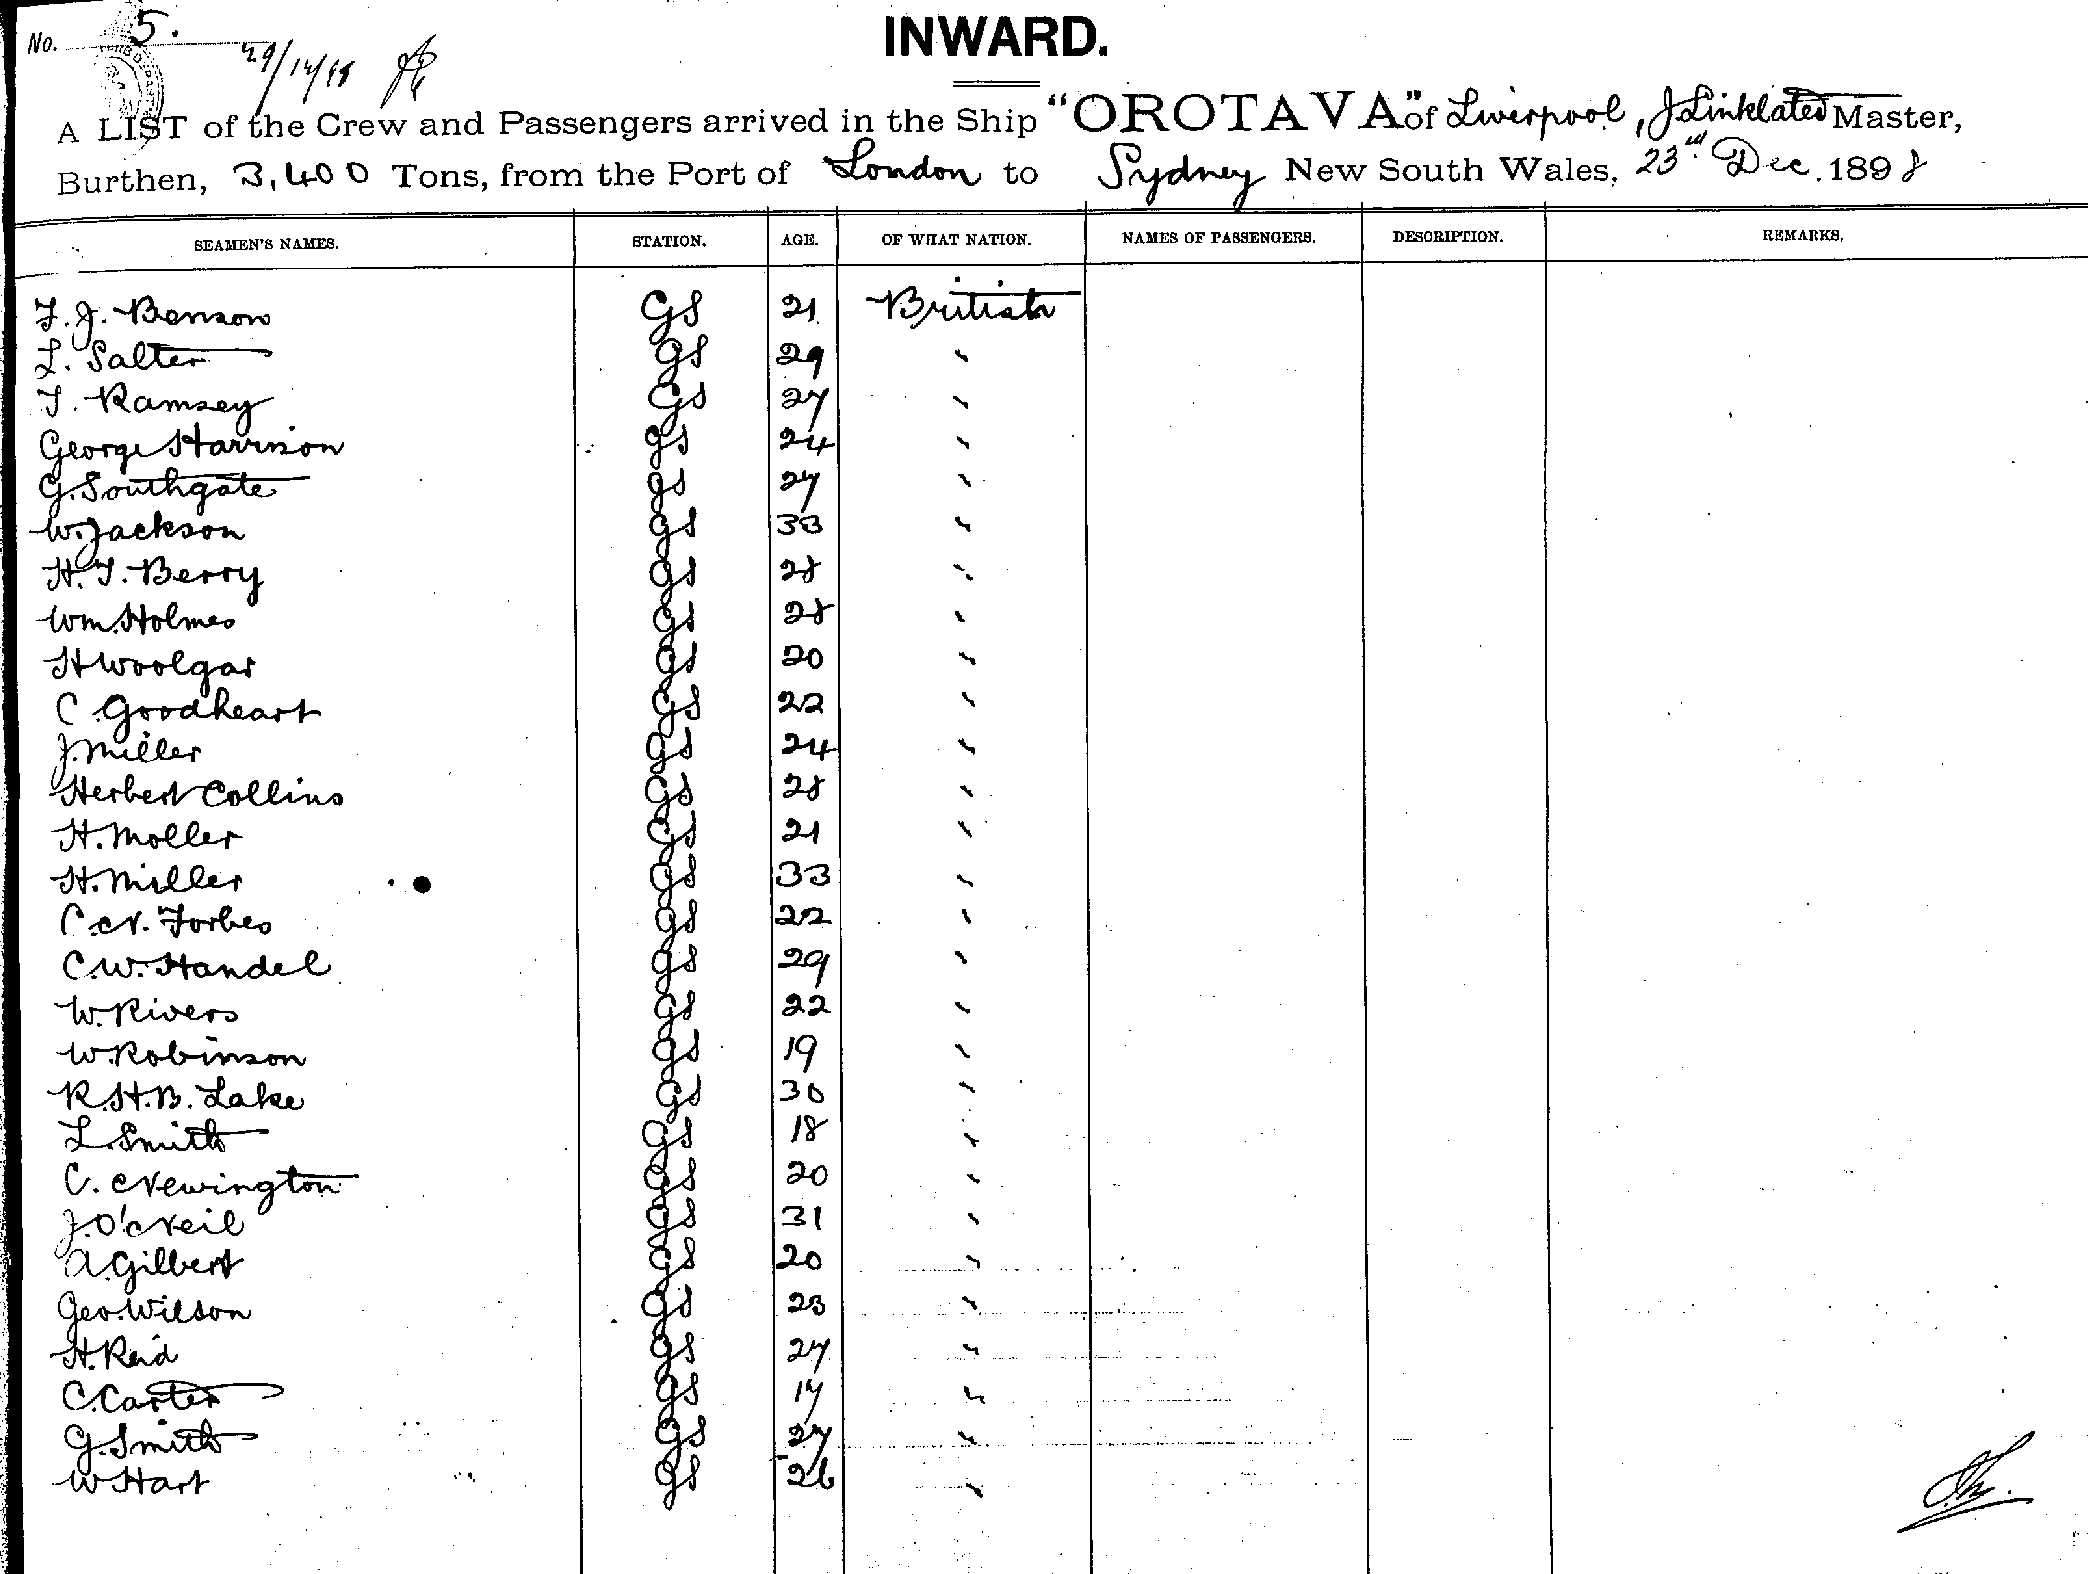 No. 5.
INWARD.
29/12/98
A LIST of the Crew and Passengers arrived in the Ship "OROTAVA" of Liverpool, J Linklater Master,
Burthen, 3,400 Tons, from the Port of London to Sydney New South Wales, 23rd Dec. 1898
SEAMEN'S NAMES. STATION. AGE. OF WHAT NATION. NAMES OF PASSENGERS. DESCRIPTION. REMARKS.
F. J. Benson GS 21 British
L. Salter GS 29 "
T. Ramsey GS 27 "
George Harrison GS 24 "
G. Southgate GS 27 "
W. Jackson GS 33 "
H. T. Berry GS 28 "
Wm. Holmes GS 28 "
H Woolgar GS 20 "
C Goodheart GS 22 "
J. Miller GS 24 "
Herbert Collins GS 28 "
H. Moller GS 21 "
H. Miller GS 33 "
C. N. Forbes GS 22 "
C. W. Handel GS 29 "
W. Rivers GS 22 "
W. Robinson GS 19 "
R. H. B. Lake GS 30 "
L. Smith GS 18 "
C. Newington GS 20 "
J. O'Neil GS 31 "
A. Gilbert GS 20 "
Geo. Wilson GS 23 "
H. Reid GS 27 "
C. Carter GS 17 "
G. Smith GS 27 "
W Hart GS 26 "